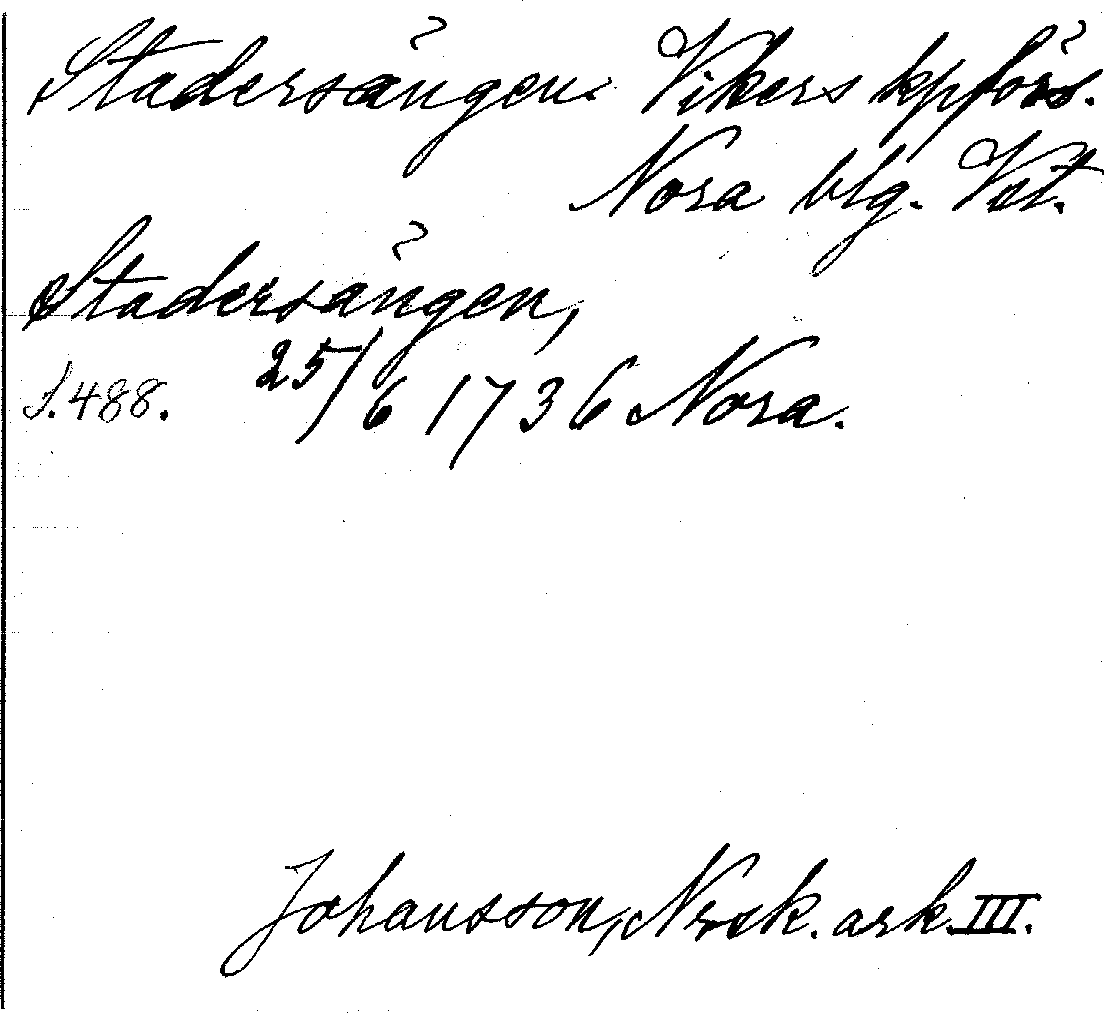 Stadersängen. Vikers kpförs.
Nora blg. Vst.
Stadersängen,
S. 488. 25/6 1736 Nora.
Johansson, Nrsk. ark. III.